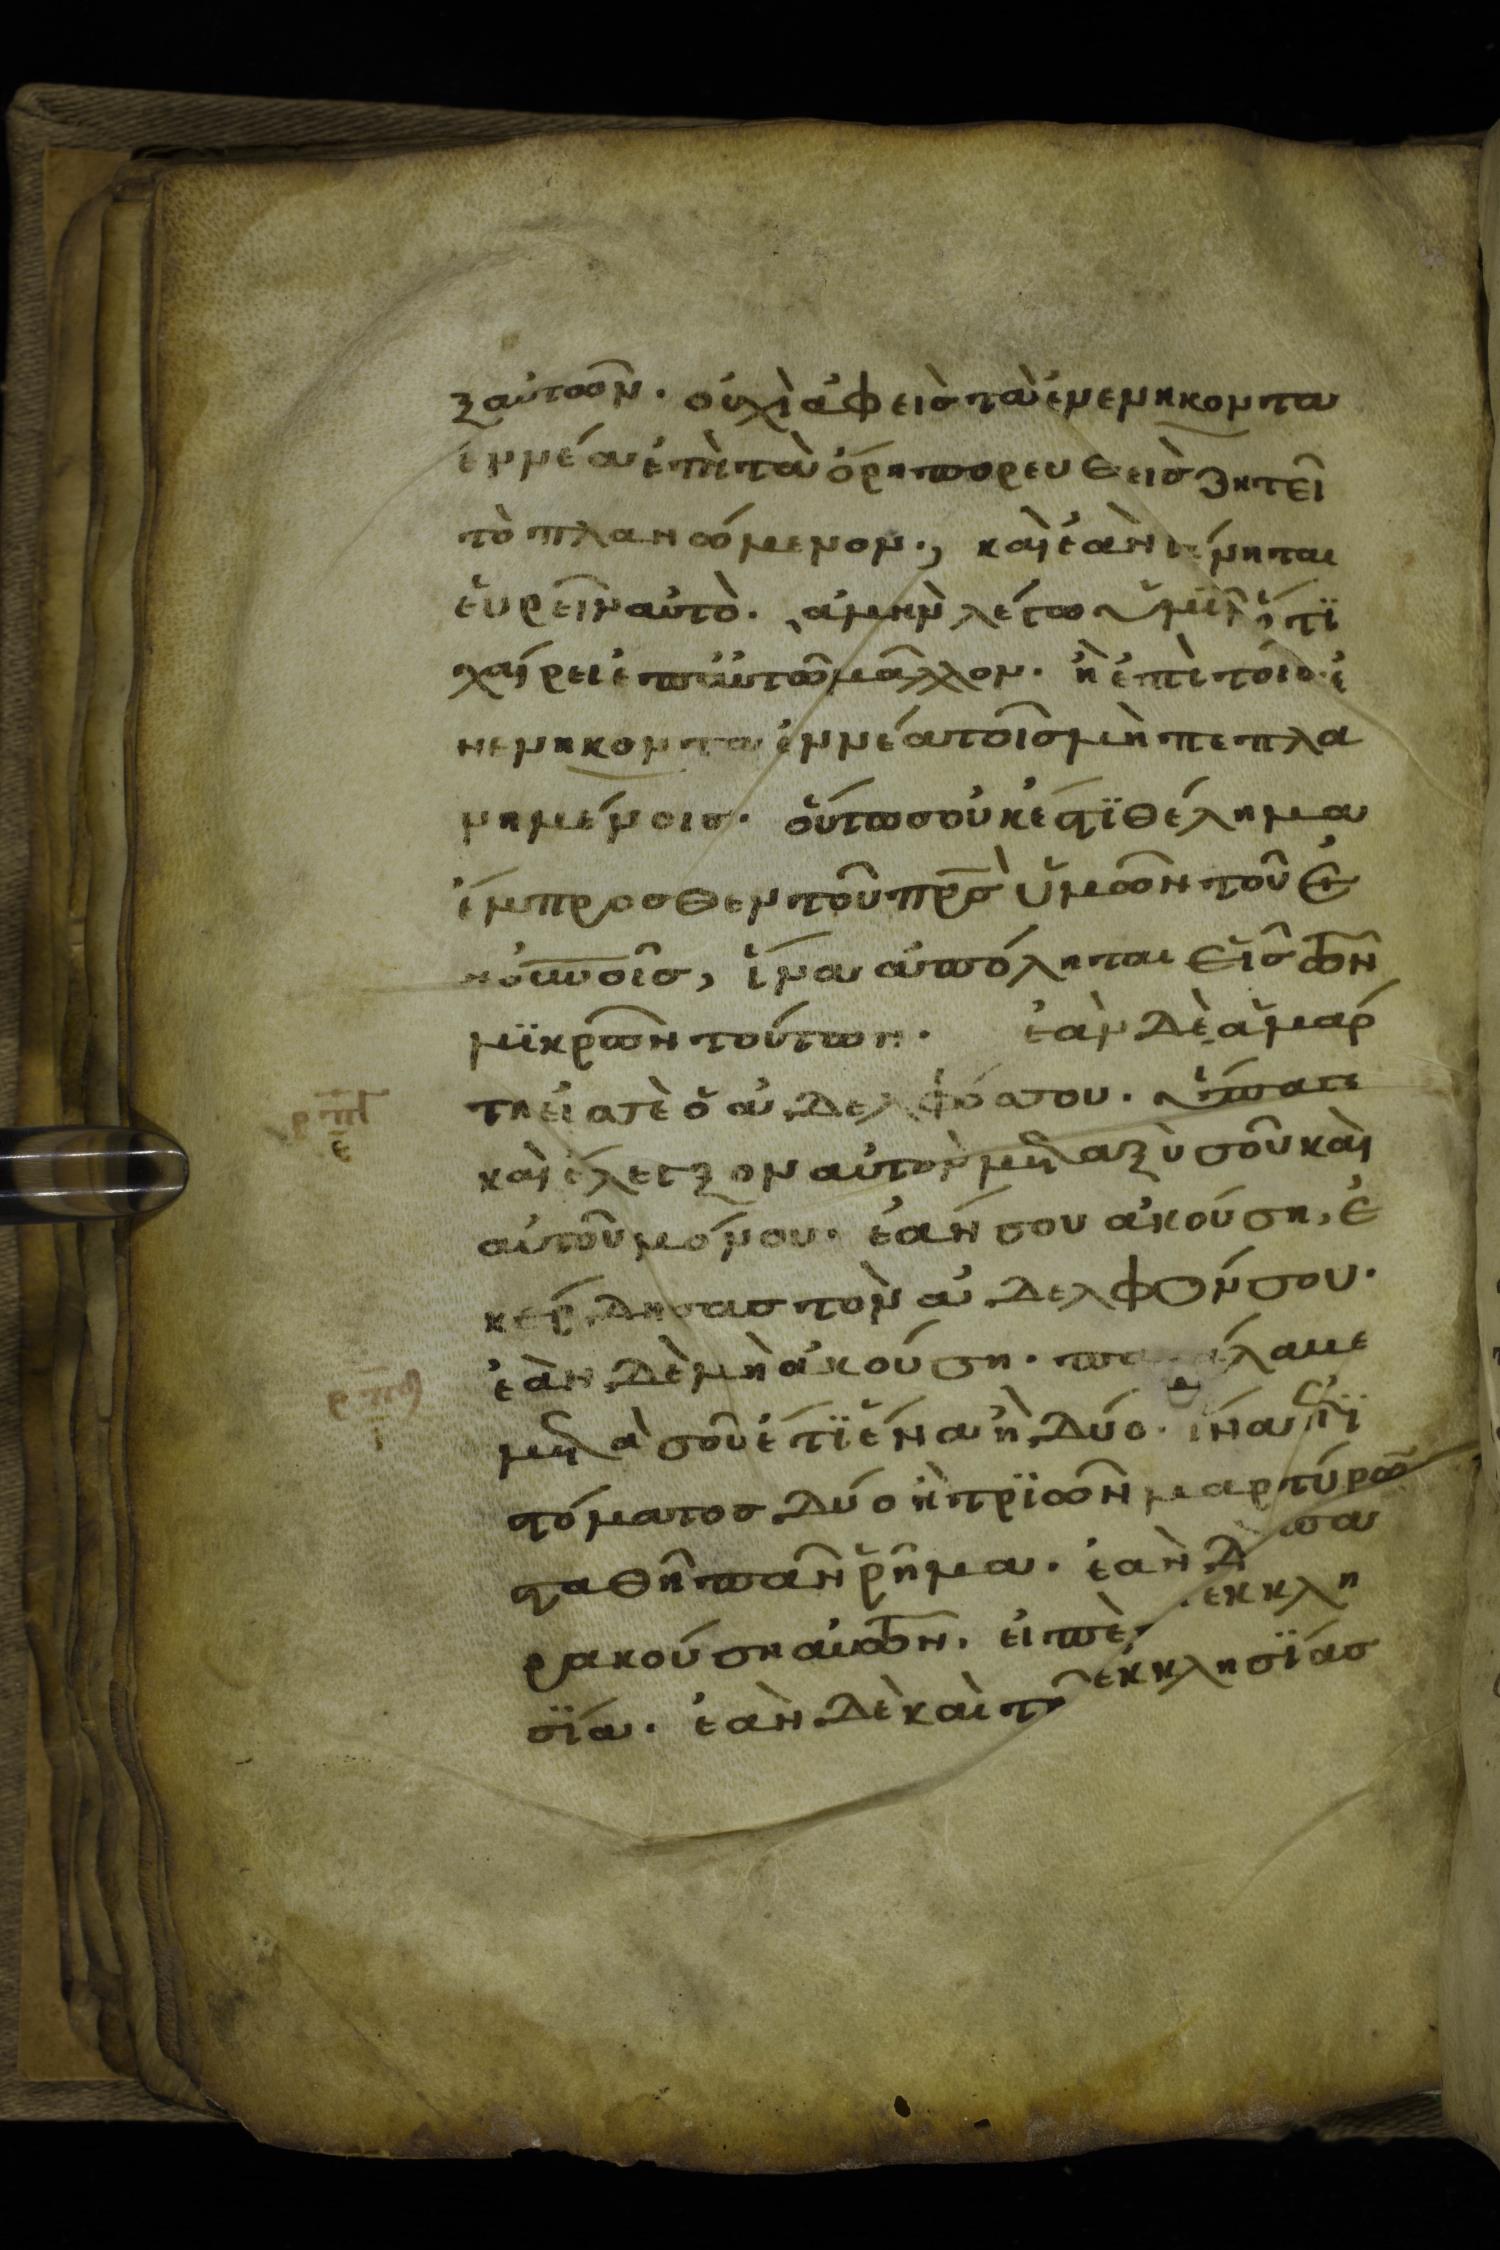 ξαυτῶν. οὐχὶ ἀφεὶς τὰ ἐνενηκοντα
ἐννέα ἐπὶ τὰ ὄρη πορευθεὶς ζητεῖ
τὸ πλανώμενον., καὶ ἐὰν γένηται
εὑρεῖν αὐτὸ. ἀμὴν λέγω ὑμῖν ὅτϊ
χαίρει ἐπ αὐτῶ μᾶλλον. ἢ ἐπὶ τοῖς ἐ
νενηκοντα ἐννέα τοῖς μὴ πεπλα
νημένοις. οὕτως οὐκ έϛϊ θέλημα
ἔμπροσθεν τοῦ πρ̅σ ὑμῶν τοῦ ἐν
ὀυνοῖς, ἵνα ἀπόληται εἷς τῶν
μϊκρῶν τούτων. ἐὰν δὲ ἁμάρ
τηει σε ὁ ἀδελφός σου. ὕπαγε
καὶ ἔλεγξον αὐτὸν μεταξὺ σοῦ καὶ
αὐτοῦ μόνου. ἐάν σου ἀκούση, ἐ
κέρδησας τὸν ἀδελφόν σου.
ἐὰν δὲ μὴ ἀκούση. παράλαβε
μετὰ σοῦ ἔτϊ ἕνα ἢ δύο. ἵνα ἐπῒ
ϛόματος δύο ἢ τρϊῶν μαρτύρω̅
ϛαθῆ πᾶν ῥῆμα. ἐὰν δ πα
ρακούση αυτῶν. εἰπὲ ἐκκλη
σϊία. ἐὰν δὲ καὶ τῆ ἐκκλησϊίας